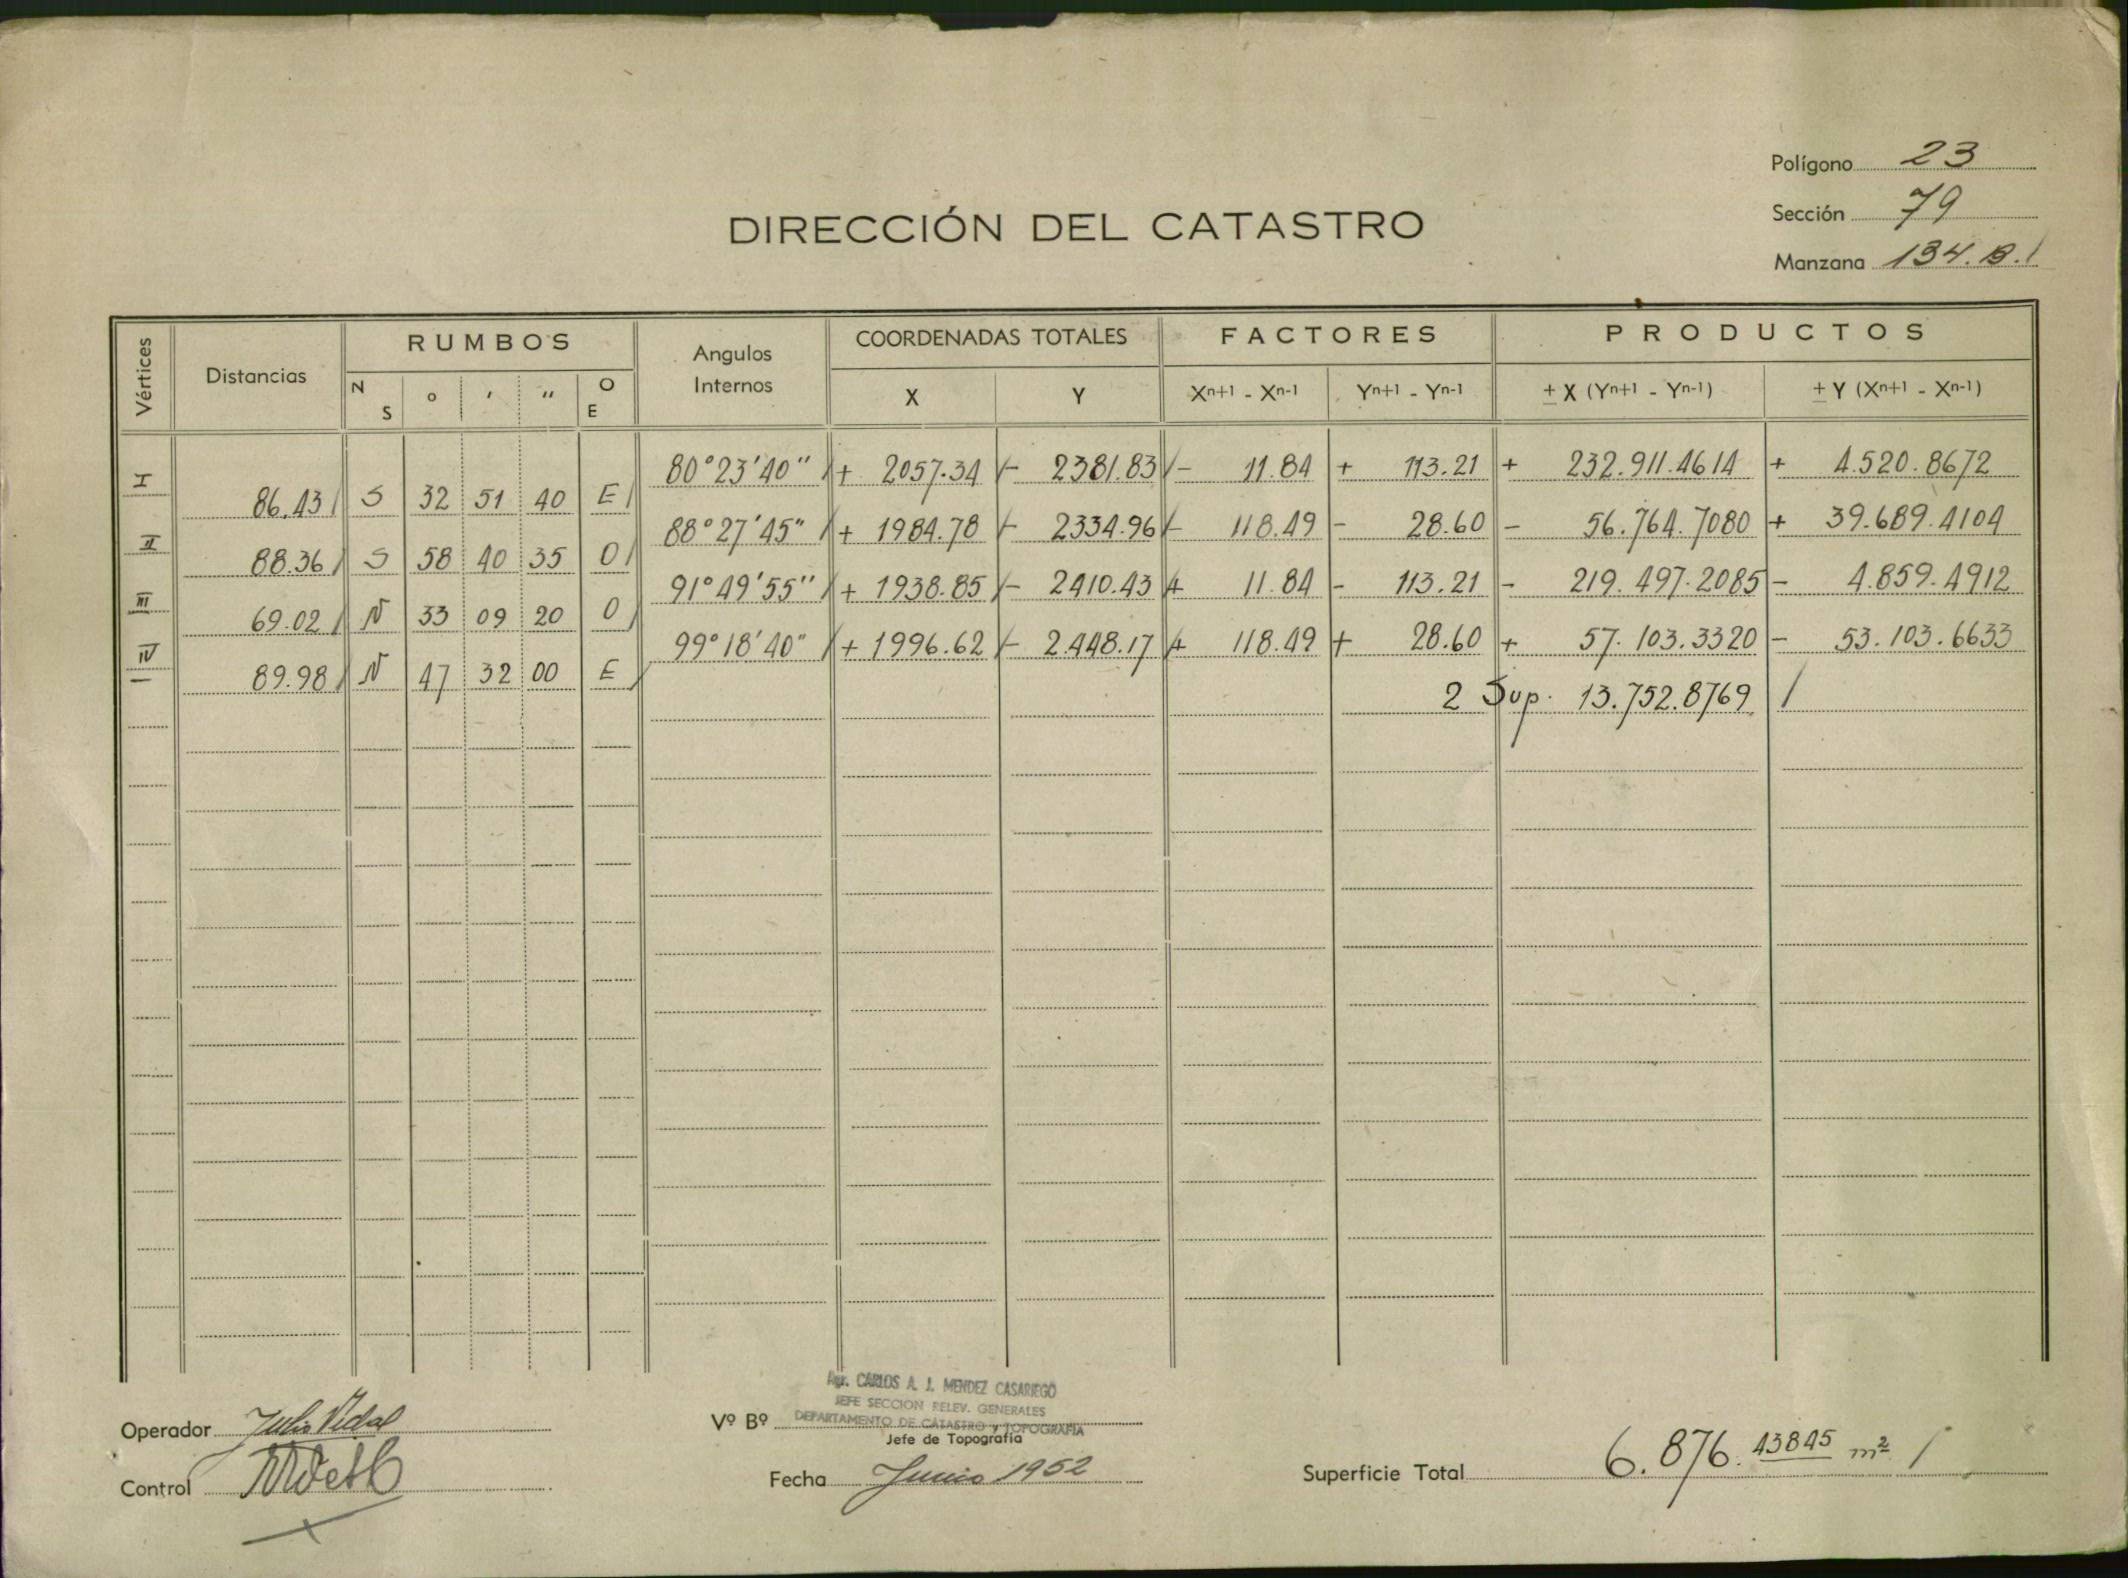 Polígono 23
Sección 79
Manzana 134.B./
DIRECCIÓN DEL CATASTRO
Vértices Distancias RUMBOS Angulos Internos COORDENADAS TOTALES FACTORES PRODUCTOS
N S ° ' " O E X Y Xn+1 - Xn-1 Yn+1 - Yn-1 ± X (Yn+1 - Yn-1) ± Y (Xn+1 - Xn-1)
I 80°23'40" / + 2057.34 / - 2381.83 / - 11.84 + 113.21 + 232.911.4614 + 4.520.8672
86.43 / S 32 51 40 E /
II 88°27'45" / + 1984.78 / - 2334.96 / - 118.49 - 28.60 - 56.764.7080 + 39.689.4104
88.36 / S 58 40 35 O /
III 91°49'55" / + 1938.85 / - 2410.43 / + 11.84 - 113.21 - 219.497.2085 - 4.859.4912
69.02 / N 33 09 20 O /
IV 99°18'40" / + 1996.62 / - 2.448.17 / + 118.49 + 28.60 + 57.103.3320 - 53.103.6633
89.98 / N 47 32 00 E /
2 Sup. 13.752.8769 /
Operador Julio Vidal
Control
Vº Bº
Agr. CARLOS A. J. MENDEZ CASARIEGO
JEFE SECCION RELEV. GENERALES
DEPARTAMENTO DE CATASTRO y TOPOGRAFIA
Jefe de Topografía
Fecha Junio 1952
Superficie Total 6.876.43845 m² /